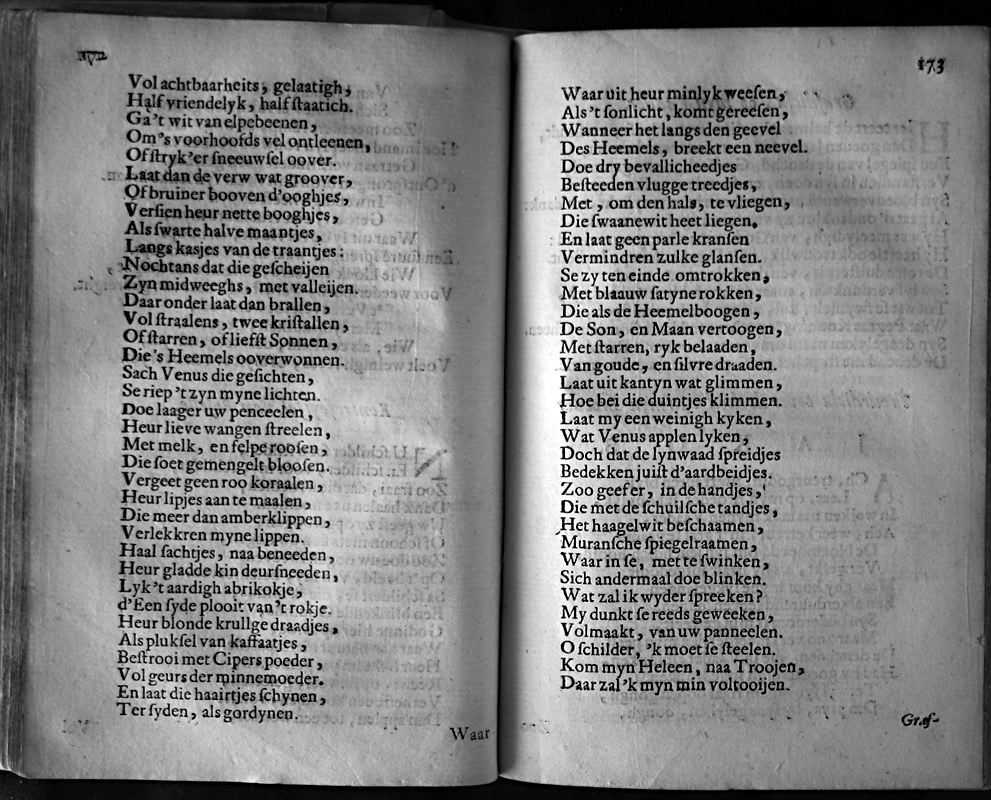 Vol achtbaarheits, gelaatigh,
Half vriendelyk, half ſtaatich.
Ga't wit van elpebeenen,
Om's voorhoofds vel ontleenen,
Of ſtryk'er ſneeuwſel oover.
Laat dan de verw wat groover,
Of bruiner booven d'ooghjes,
Verſien heur nette booghjes,
Als ſwarte halve maantjes,
Langs kasjes van de traantjes:
Nochtans dat die geſcheijen
Zyn midweeghs, met valleijen.
Daar onder laat dan brallen,
Vol ſtraalens, twee kriſtallen,
Of ſtarren, of liefſt Sonnen,
Die's Heemels ooverwonnen.
Sach Venus die geſichten,
Se riep 't zyn myne lichten.
Doe laager uw penceelen,
Heur lieve wangen ſtreelen,
Met melk, en felpe rooſen,
Die ſoet gemengelt blooſen.
Vergeet geen roo koraalen,
Heur lipjes aan te maalen,
Die meer dan amberklippen,
Verlekkren myne lippen.
Haal ſachtjes, naa beneeden,
Heur gladde kin deurſneeden,
Lyk't aardigh abrikokje,
d'Een ſyde plooit van't rokje.
Heur blonde krullge draadjes,
Als plukſel van kaffaatjes,
Beſtrooi met Cipers poeder,
Vol geurs der minnemoeder.
En laat die haairtjes ſchynen,
Ter ſyden, als gordynen.
Waar
173
Waar uit heur minlyk weeſen,
Als 't ſonlicht, komt gereeſen,
Wanneer het langs den geevel
Des Heemels, breekt een neevel.
Doe dry bevallicheedjes
Beſteeden vlugge treedjes,
Met, om den hals, te vliegen,
Die ſwaanewit heet liegen.
En laat geen parle kranſen
Vermindren zulke glanſen.
Se zy ten einde omtrokken,
Met blaauw ſatyne rokken,
Die als de Heemelboogen,
De Son, en Maan vertoogen,
Met ſtarren, ryk belaaden,
Van goude, en ſilvre draaden.
Laat uit kantyn wat glimmen,
Hoe bei die duintjes klimmen.
Laat my een weinigh kyken,
Wat Venus applen lyken,
Doch dat de lynwaad ſpreidjes
Bedekken juiſt d'aardbeidjes.
Zoo geef er, in de handjes,
Die met de ſchuilſche tandjes,
Het haagelwit beſchaamen,
Muranſche ſpiegelraamen,
Waar in ſe, met te ſwinken,
Sich andermaal doe blinken.
Wat zal ik wyder ſpreeken?
My dunkt ſe reeds geweeken,
Volmaakt, van uw panneelen.
O ſchilder, 'k moet ſe ſteelen.
Kom myn Heleen, naa Troojen,
Daar zal 'k myn min voltooijen.
Græf-